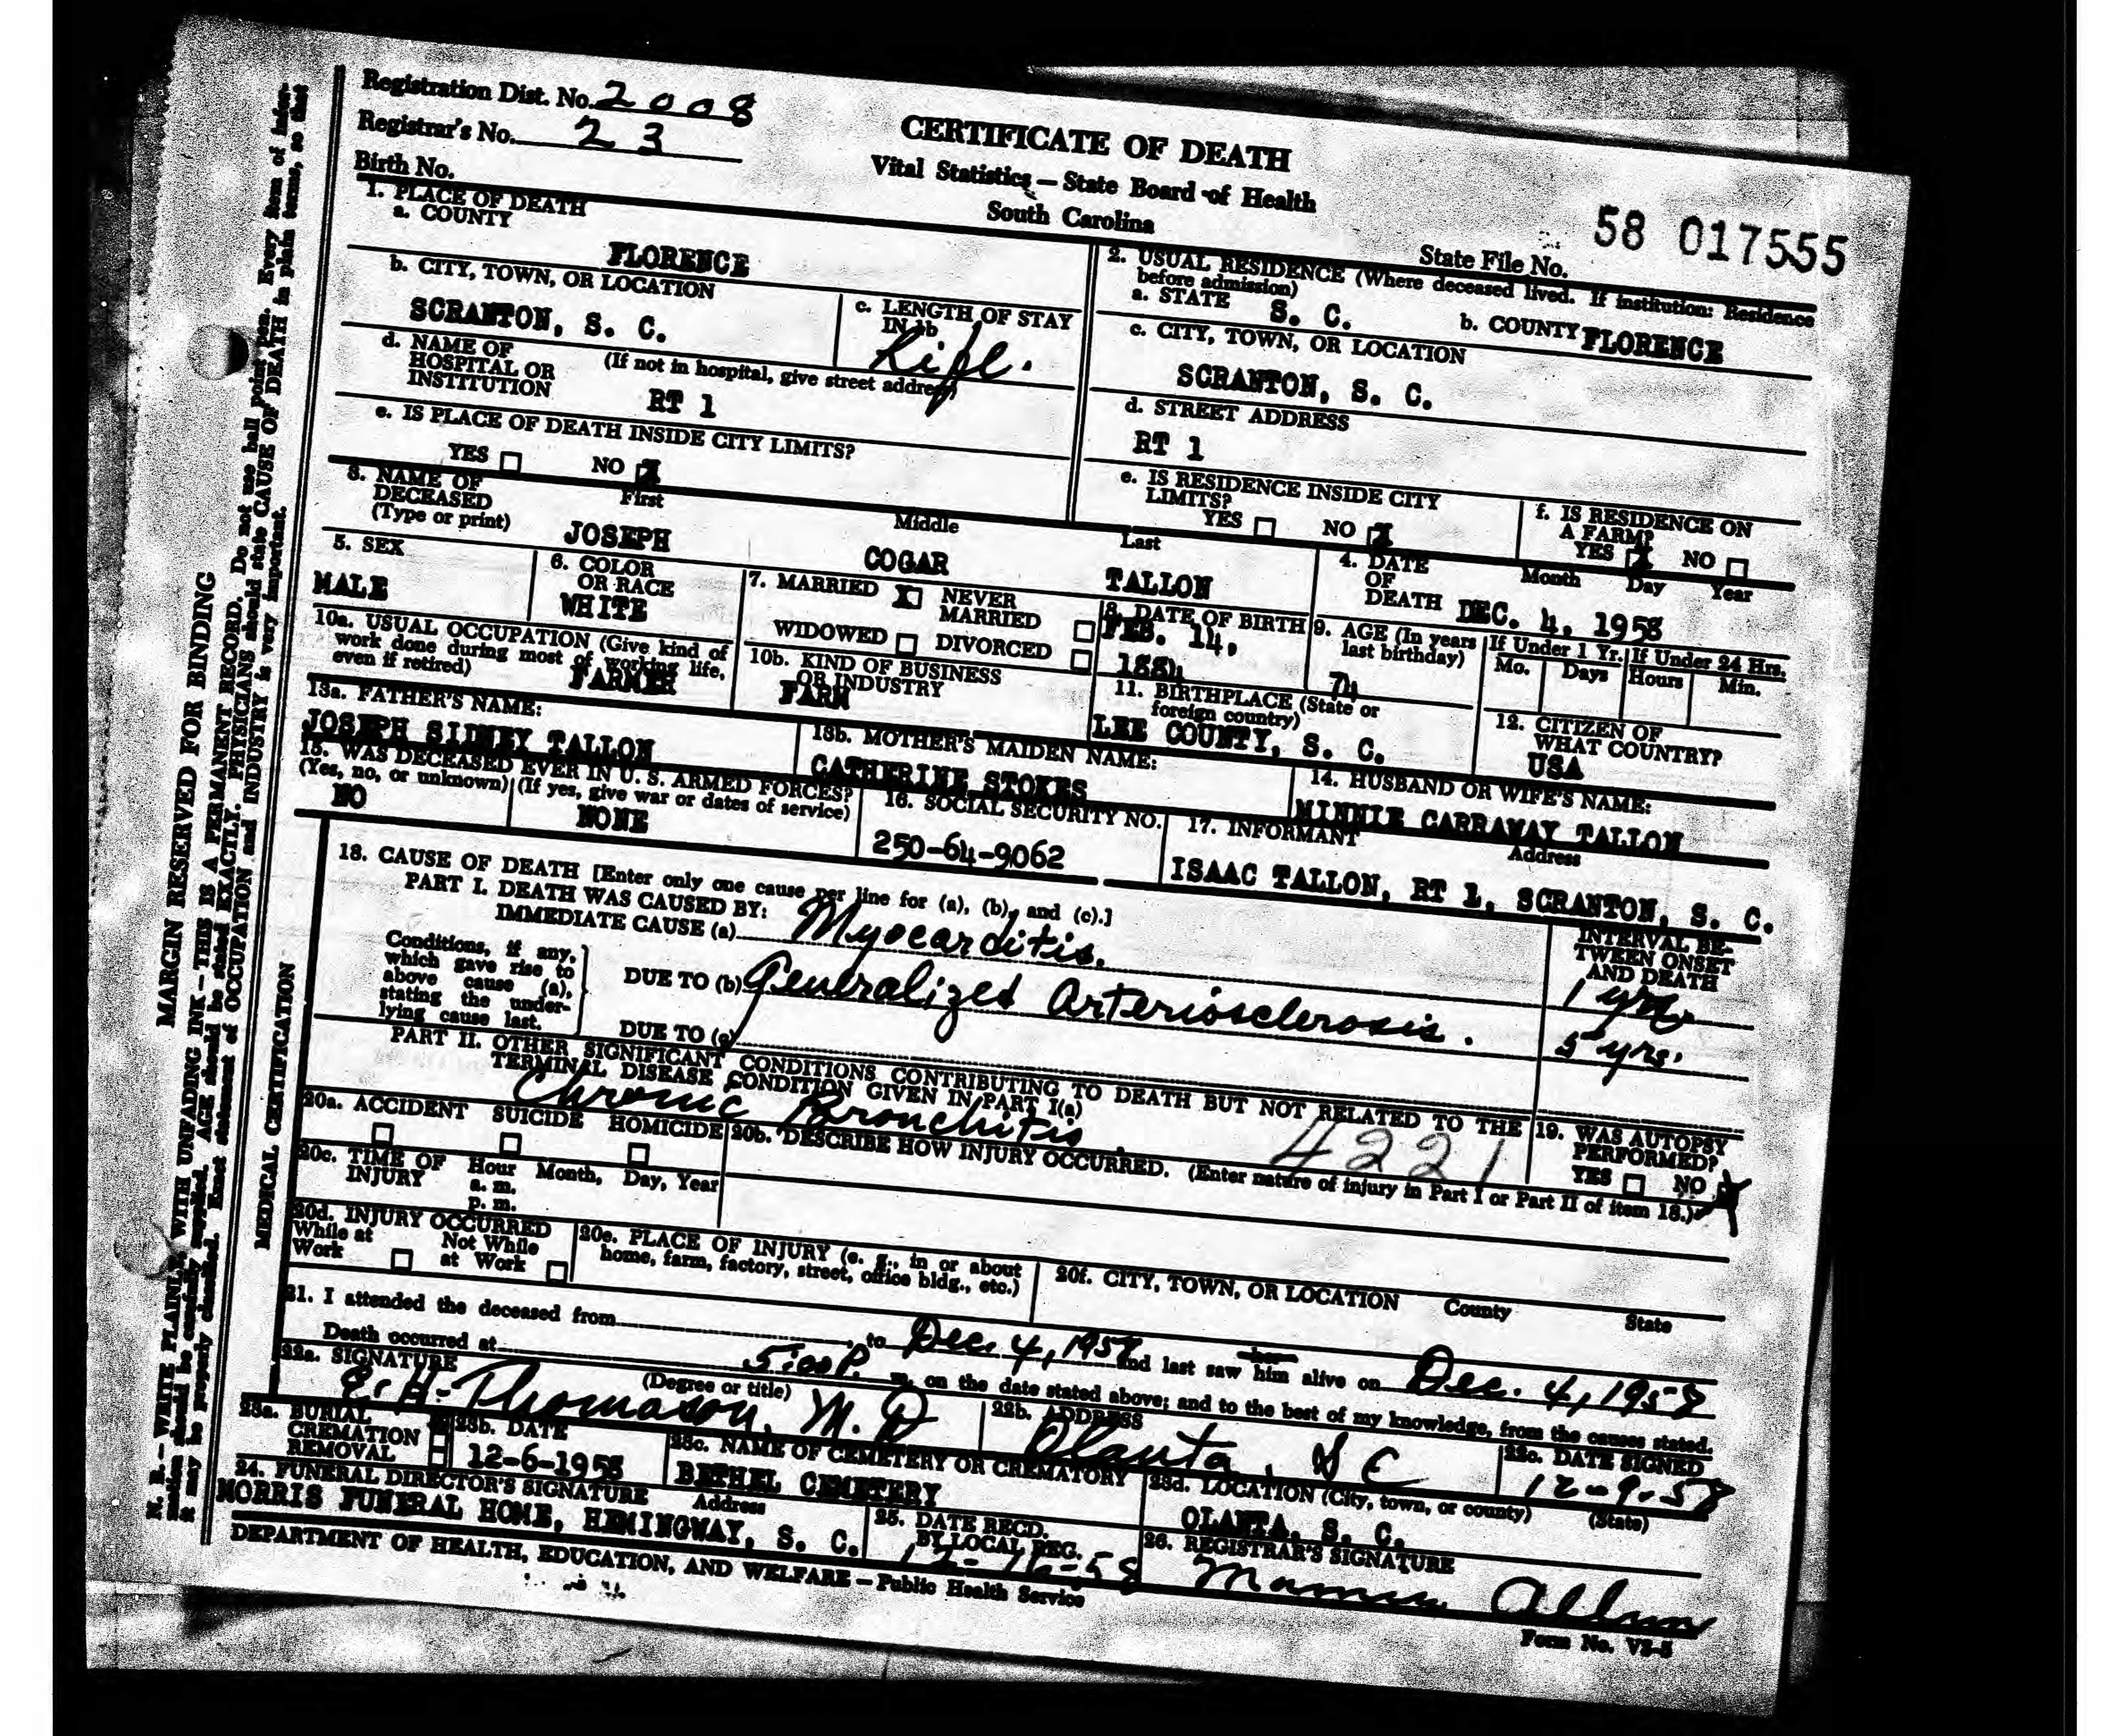 Registration Dist. No. 2008
Registrar's No. 23
Birth No.
CERTIFICATE OF DEATH
Vital Statistics — State Board of Health
South Carolina
State File No. 58 017555
1. PLACE OF DEATH
a. COUNTY
FLORENCE
b. CITY, TOWN, OR LOCATION
SCRANTON, S. C.
c. LENGTH OF STAY IN 1b
Life.
d. NAME OF HOSPITAL OR INSTITUTION (If not in hospital, give street address)
RT 1
e. IS PLACE OF DEATH INSIDE CITY LIMITS?
YES NO X
2. USUAL RESIDENCE (Where deceased lived. If institution: Residence before admission)
a. STATE S. C. b. COUNTY FLORENCE
c. CITY, TOWN, OR LOCATION
SCRANTON, S. C.
d. STREET ADDRESS
RT 1
e. IS RESIDENCE INSIDE CITY LIMITS?
YES NO X
f. IS RESIDENCE ON A FARM?
YES X NO
3. NAME OF DECEASED (Type or print)
First Middle Last
JOSEPH COGAR TALLON
4. DATE OF DEATH Month Day Year
DEC. 4, 1958
5. SEX
MALE
6. COLOR OR RACE
WHITE
7. MARRIED X NEVER MARRIED
WIDOWED DIVORCED
8. DATE OF BIRTH
FEB. 14, 1884
9. AGE (In years last birthday)
74
If Under 1 Yr. If Under 24 Hrs.
Mo. Days Hours Min.
10a. USUAL OCCUPATION (Give kind of work done during most of working life, even if retired)
FARMER
10b. KIND OF BUSINESS OR INDUSTRY
FARM
11. BIRTHPLACE (State or foreign country)
LEE COUNTY, S. C.
12. CITIZEN OF WHAT COUNTRY?
USA
13a. FATHER'S NAME:
JOSEPH SIDNEY TALLON
13b. MOTHER'S MAIDEN NAME:
CATHERINE STOKES
14. HUSBAND OR WIFE'S NAME:
MINNIE CARRAWAY TALLON
15. WAS DECEASED EVER IN U. S. ARMED FORCES?
(Yes, no, or unknown) (If yes, give war or dates of service)
NO NONE
16. SOCIAL SECURITY NO.
250-64-9062
17. INFORMANT Address
ISAAC TALLON, RT 1, SCRANTON, S. C.
18. CAUSE OF DEATH [Enter only one cause per line for (a), (b), and (c).]
PART I. DEATH WAS CAUSED BY:
IMMEDIATE CAUSE (a) Myocarditis.
Conditions, if any, which gave rise to above cause (a), stating the underlying cause last.
DUE TO (b) Generalized Arteriosclerosis.
DUE TO (c)
INTERVAL BETWEEN ONSET AND DEATH
1 yr.
5 yrs.
PART II. OTHER SIGNIFICANT CONDITIONS CONTRIBUTING TO DEATH BUT NOT RELATED TO THE TERMINAL DISEASE CONDITION GIVEN IN PART I(a)
Chronic Bronchitis.
4221
19. WAS AUTOPSY PERFORMED?
YES NO X
20a. ACCIDENT SUICIDE HOMICIDE
20b. DESCRIBE HOW INJURY OCCURRED. (Enter nature of injury in Part I or Part II of item 18.)
20c. TIME OF INJURY Hour Month, Day, Year
a. m.
p. m.
20d. INJURY OCCURRED
While at Work Not While at Work
20e. PLACE OF INJURY (e. g., in or about home, farm, factory, street, office bldg., etc.)
20f. CITY, TOWN, OR LOCATION County State
21. I attended the deceased from to Dec. 4, 1958 and last saw her him alive on Dec. 4, 1958
Death occurred at 5:00 P. m. on the date stated above; and to the best of my knowledge, from the causes stated.
22a. SIGNATURE (Degree or title)
E. H. Thomason, M. D
22b. ADDRESS
Olanta, S C
22c. DATE SIGNED
12-9-58
23a. BURIAL
CREMATION
REMOVAL
23b. DATE
12-6-1958
23c. NAME OF CEMETERY OR CREMATORY
BETHEL CEMETERY
23d. LOCATION (City, town, or county) (State)
OLANTA, S. C.
24. FUNERAL DIRECTOR'S SIGNATURE Address
MORRIS FUNERAL HOME, HEMINGWAY, S. C.
25. DATE RECD. BY LOCAL REG.
26. REGISTRAR'S SIGNATURE
DEPARTMENT OF HEALTH, EDUCATION, AND WELFARE — Public Health Service
Form No. VS-5
MARGIN RESERVED FOR BINDING
N. B. — WRITE PLAINLY WITH UNFADING INK — THIS IS A PERMANENT RECORD. Do not use ball point pen. Every item of information should be carefully supplied. AGE should be stated EXACTLY. PHYSICIANS should state CAUSE OF DEATH in plain terms, so that it may be properly classified. Exact statement of OCCUPATION and INDUSTRY is very important.
MEDICAL CERTIFICATION